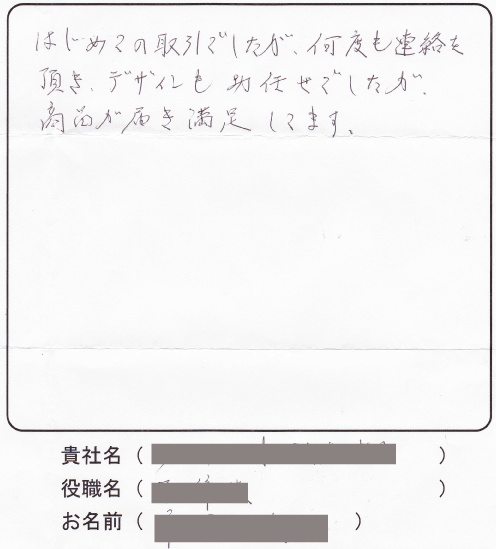 はじめての取引でしたが、何度も連絡を
頂き、デザインもお任せでしたが、
商品が届き満足してます。
貴社名（　　　）
役職名（　　　）
お名前（　　　）